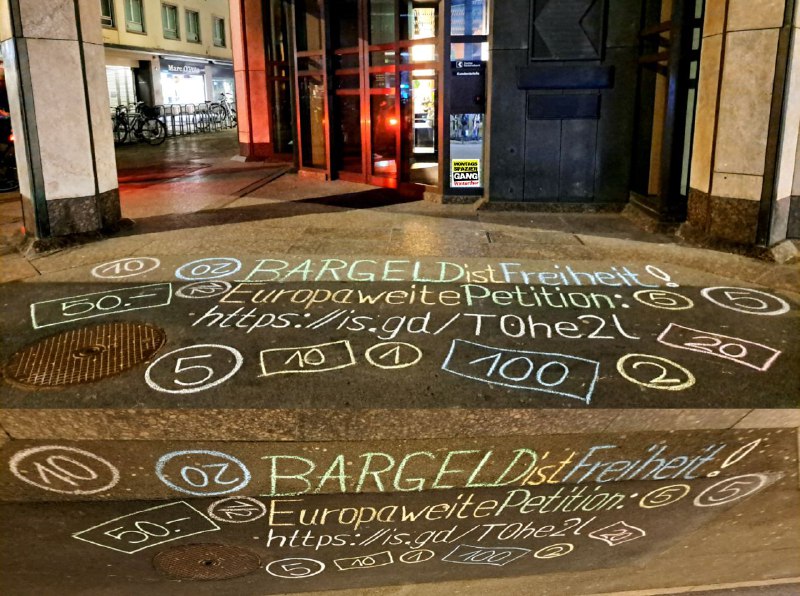 Marc O'Polo
MONTAGS
SPAZIER
GANG
10 20 BARGELD ist Freiheit!
50.- Europaweite Petition: 5 5
https://is.gd/T0he2l 20
5 10 1 100 2
10 20 BARGELD ist Freiheit!
50.- Europaweite Petition: 5 5
https://is.gd/T0he2l
5 10 1 100 2